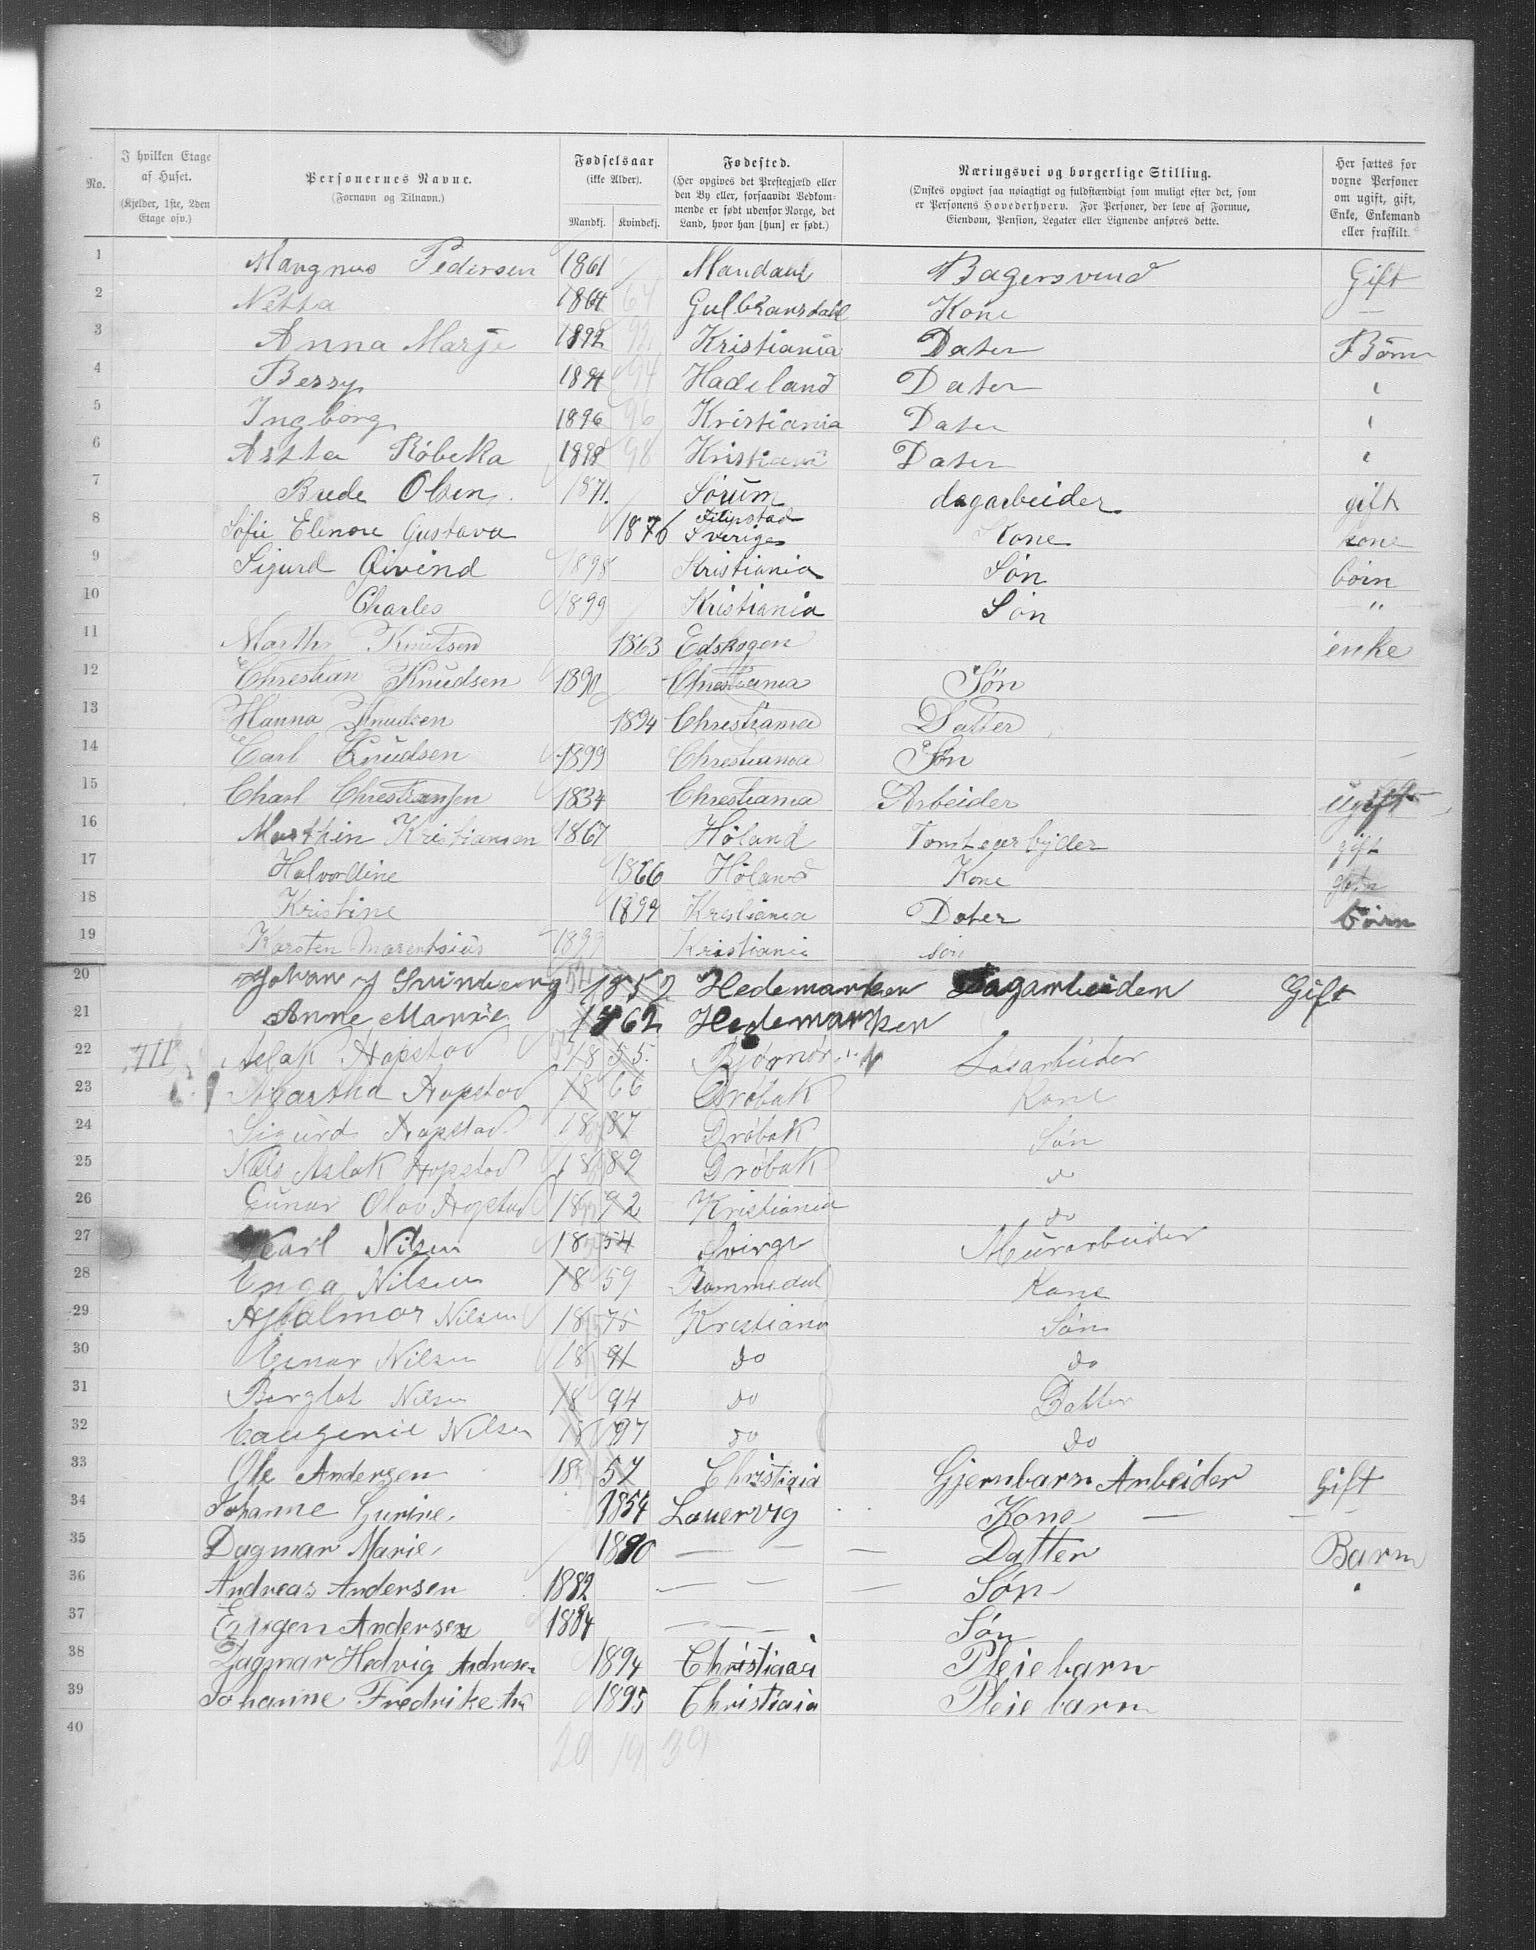 No. | I hvilken Etage af Huset. (Kjelder, 1ste, 2den Etage osv.) | Personernes Navne. (Fornavn og Tilnavn.) | Fødselsaar (ikke Alder). Mandkj. Kvindekj. | Fødested. (Her opgives det Prestegjæld eller den By eller, forsaavidt Vedkommende er født udenfor Norge, det Land, hvor han [hun] er født.) | Næringsvei og borgerlige Stilling. (Ønskes opgivet saa nøiagtigt og fuldstændigt som muligt efter det, som er Personens Hovederhverv. For Personer, der leve af Formue, Eiendom, Pension, Legater eller Lignende anføres dette. | Her sættes for voxne Personer om ugift, gift, Enke, Enkemand eller fraskilt.
1 Mangnus Pedersen 1861 Mandahl Bagersvend Gift
2 Netta 1864 64 Gulbransdahl Kone —
3 Anna Marje 1892 92 Kristiania Dater Börn
4 Bessy 1894 94 Hadeland Dater
5 Ingborg 1896 96 Kristiania Dater
6 Astta Röbeka 1898 98 Kristiani Dater
7 Brede Olsen. 1871. Sørum dagarbeider gift
8 Sofie Elenore Gustava 1876 Filipstad Sverige Kone kone
9 Sigurd Øivind 1898 Kristiania Søn börn
10 Charles 1899 Kristiania Søn "
11 Marthe Knutsen 1863 Edskogen enke
12 Christian Knudsen 1890 Christiania Søn
13 Hanna Knudsen 1894 Christiania Datter
14 Carl Knudsen 1899 Christiania Søn
15 Charl Christiansen 1834 Christiania Arbeider ugift
16 Marthin Kristiansen 1867 Höland Tomtearbijder gift
17 Halvordine 1866 Höland Kone
18 Kristine 1899 Kristiania Doter börn
19 Karsten Marentsius 1899 Kristiania søn
20 Johan Svinberg 1852 Hedemarken Dagarbeiden Gift
21 Anne Marie 1862 Hedemarken
22 III Aslak Hopstad 1855. Bjørnør Losarbeider
23 Martha Hopstad 1866 Drøbak Kone
24 Sigurd Hopstad 1887 Drøbak Søn
25 Nils Aslak Hopstad 1889 Drøbak do
26 Gunar Olav Hopstad 1892 Kristiania do
27 Karl Nilsen 1854 Svirge Murarbeider
28 Inga Nilsen 1859 Rommedal Kone
29 Hjalmar Nilsen 1875 Kristiania Søn
30 Einar Nilsen 1891 do do
31 Bergljot Nilsen 1894 do Datter
32 Eaugenie Nilsen 1897 do do
33 Ole Andersen 1857 Christiaia Gjernbarn Arbeider Gift
34 Johanne Gurine. 1854 Lauervig Kone — — —
35 Dagmar Marie. 1880 — — — Datter Barn
36 Andreas Andersen 1882 — — — Søn
37 Eugen Andersen 1884 — — Søn
38 Dagmar Hedvig Andresen 1894 Christiaia Pleiebarn
39 Johanne Fredrikke 1895 Christiaia Pleiebarn
40
20 19 39